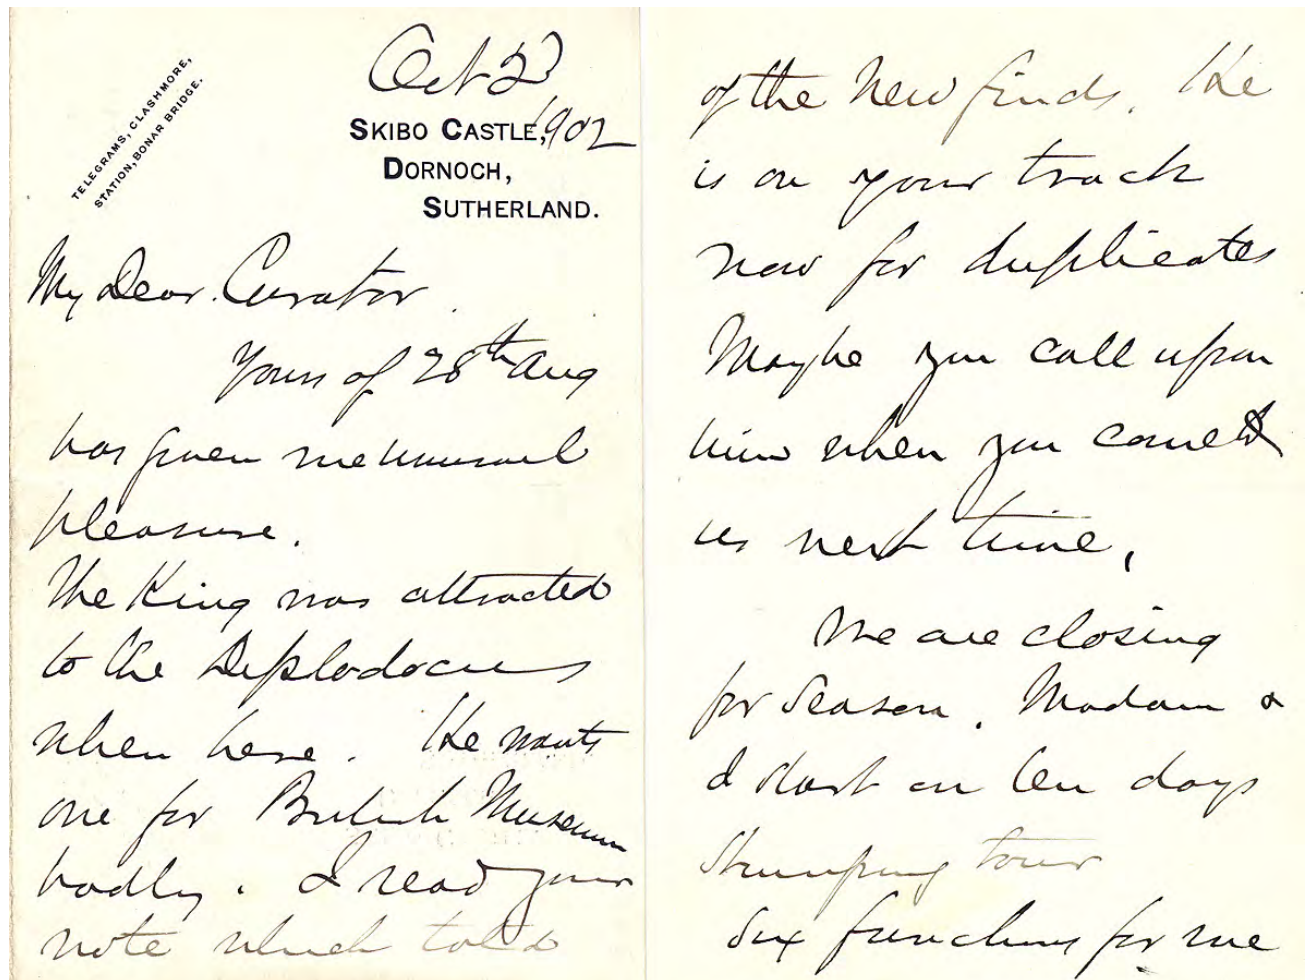 TELEGRAMS, CLASHMORE,
STATION, BONAR BRIDGE.
Oct 2
1902
SKIBO CASTLE,
DORNOCH,
SUTHERLAND.
My Dear Curator
Yours of 28th Aug
has given me unusual
pleasure.
The King was attracted
to the Diplodocus
when here. He wants
one for British Museum
badly. I read your
note which told
of the New finds. He
is on your track
now for duplicates
Maybe you call upon
him when you come to
us next time,
We are closing
for Season. Madam &
I start on ten days
stumping tour
Six functions for me